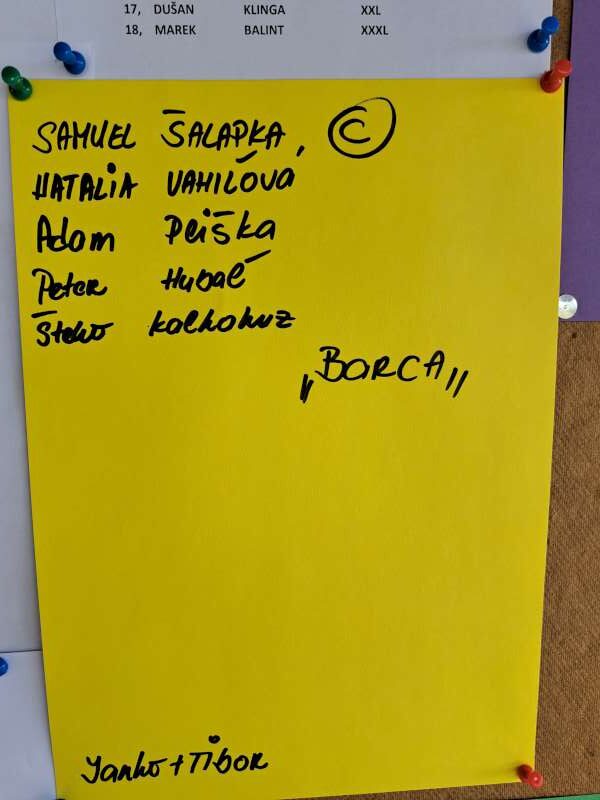 17, DUŠAN KLINGA XXL
18, MAREK BALINT XXXL
SAMUEL ŠALAPKA, ©
NATALIA VAHILOVÁ
Adam Pliška
Peter Hubač
Števo kolkohuz
„BARCA"
Janko + TIBOR